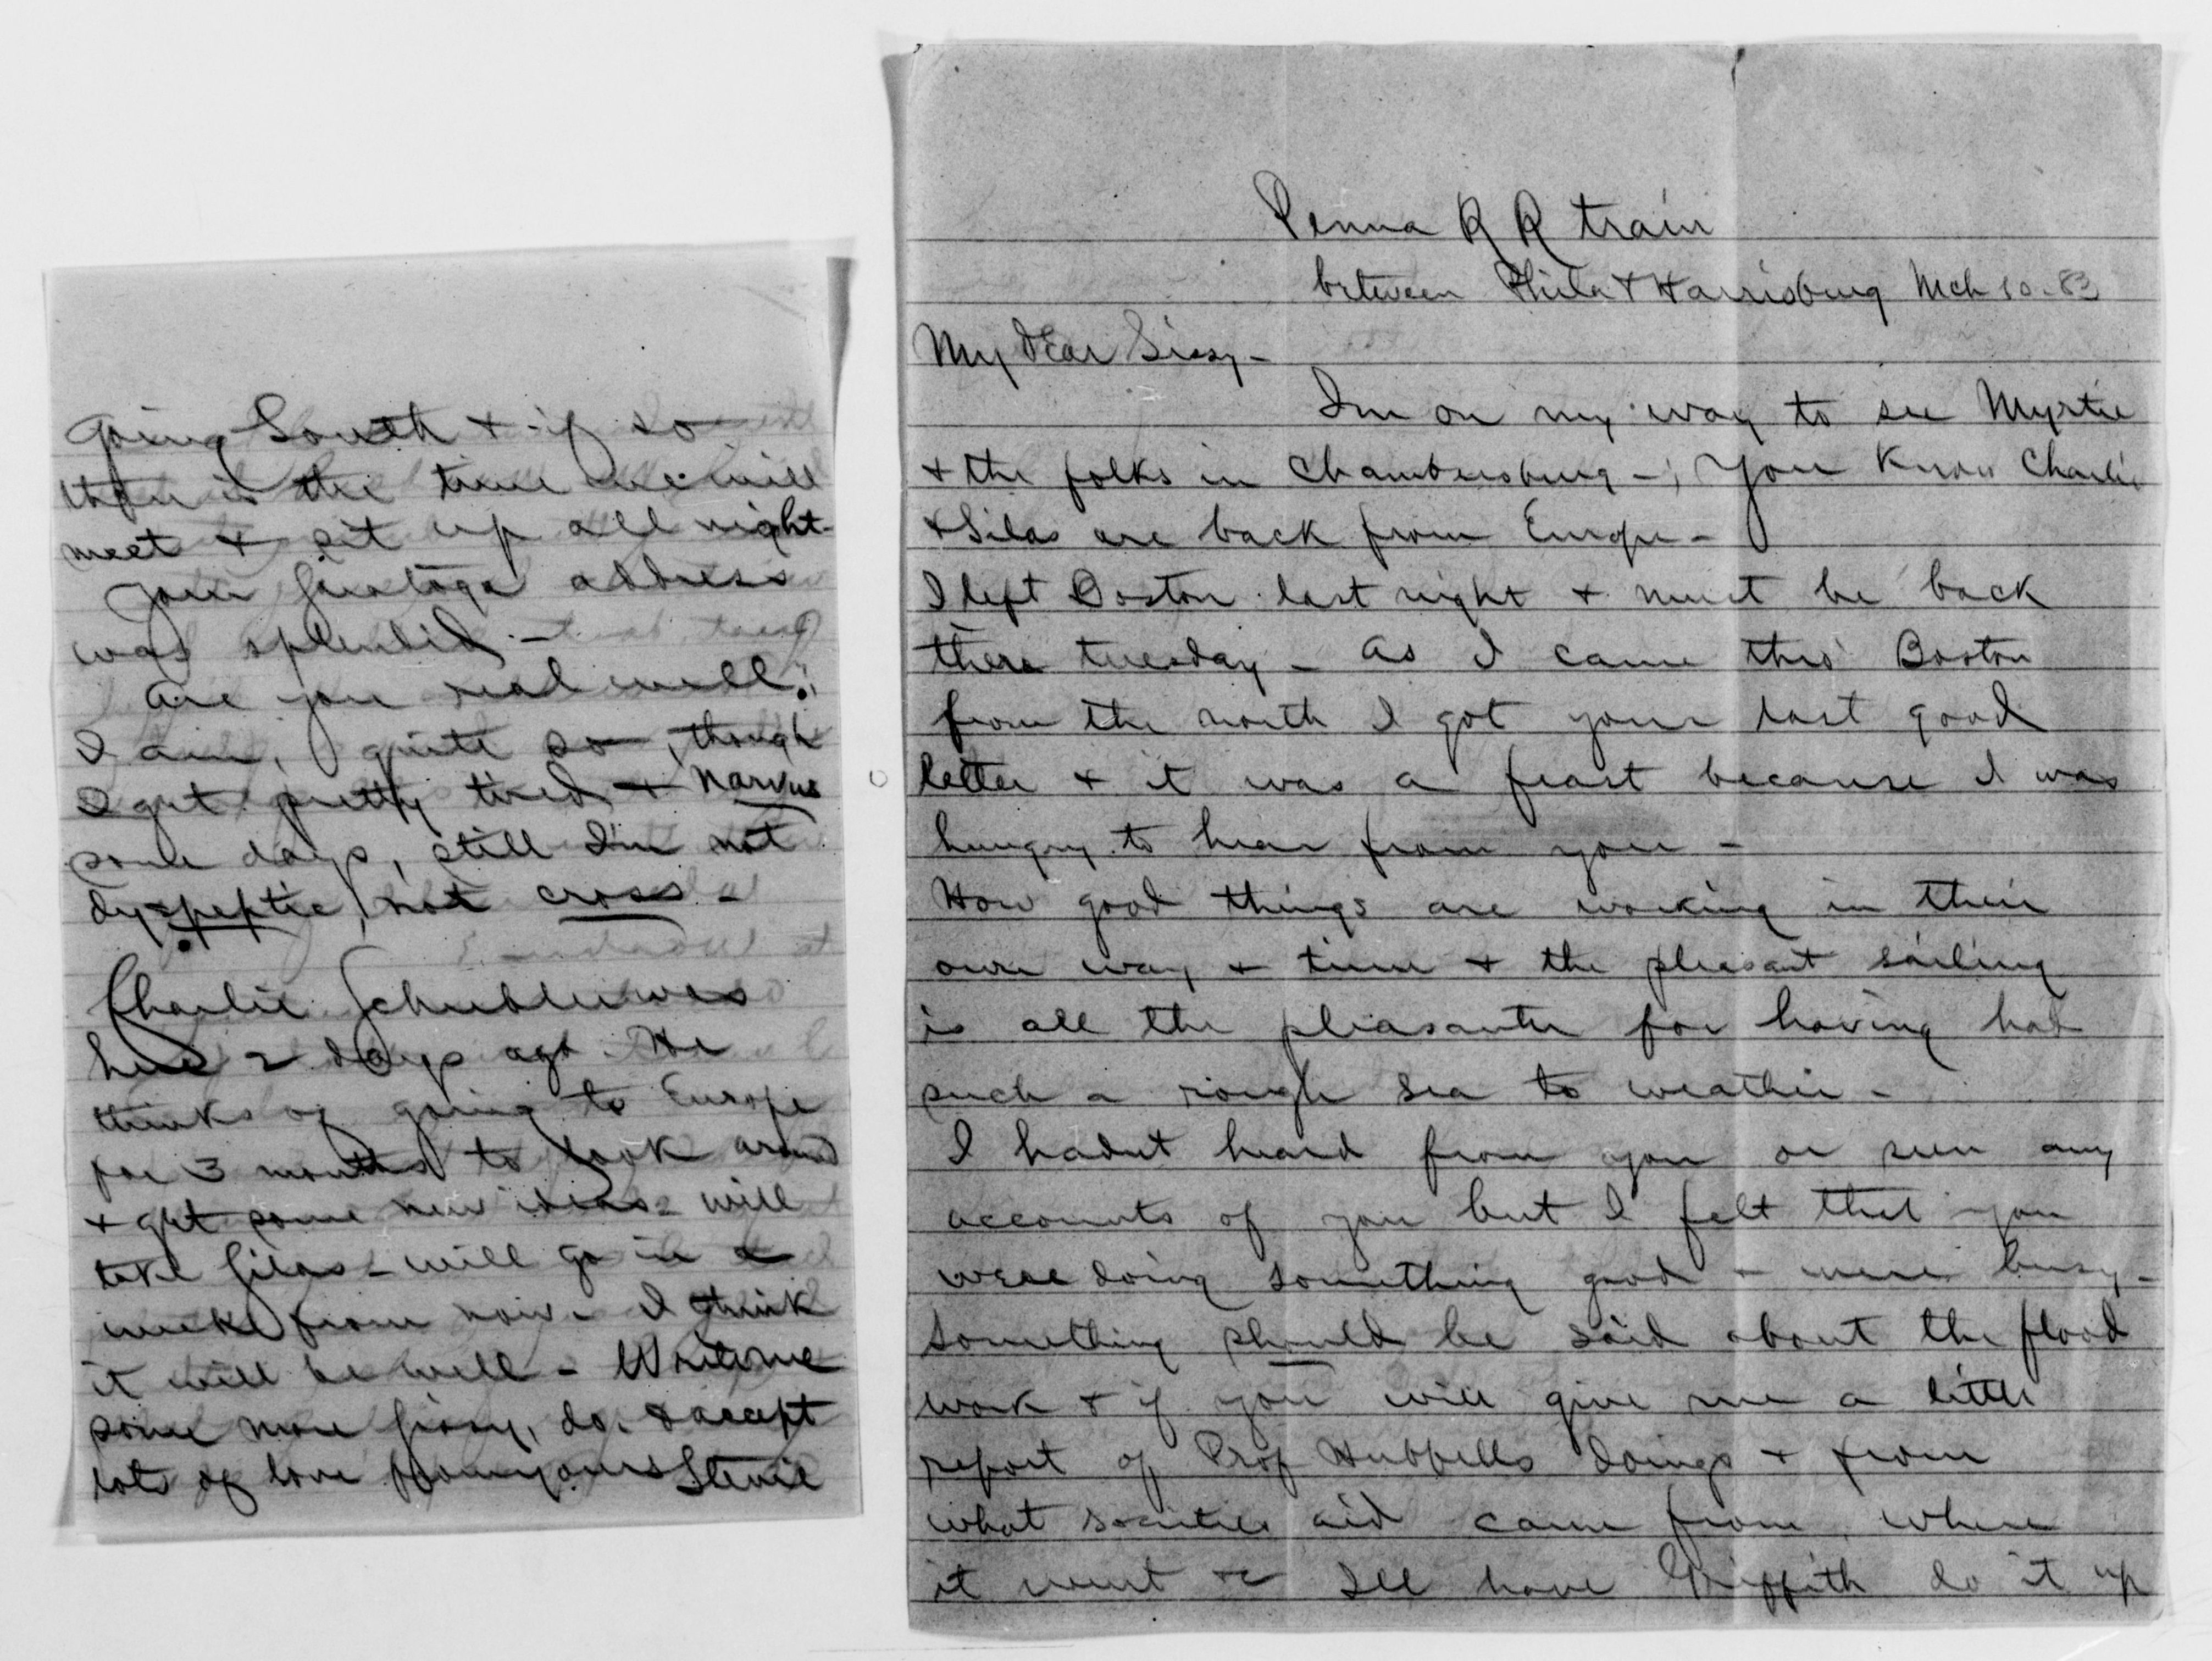 going South & if so
then is the time we will
meet & sit up all night-
Your Saratoga address
was splendid -
Are you real well?
I am, quite so, though
I get pretty tired & narvus
some days, still I'm not
dyspeptic, not cross -
Charlie Schubler was
here 2 days ago. He
thinks of going to Europe
for 3 months to look around
& get some new ideas - will
take Silas - will go in a
week from now - I think
it will be well - Write me
some more Sissy, do. & accept
lots of love from yours Stevie
Penna R R train
between Phila & Harrisburg Mch 10-83
My dear Sissy -
Im on my way to see Myrtie
& the folks in Chambersburg -, You know Charlie
& Silas are back from Europe -
I left Boston last night & must be back
there tuesday - As I came thro' Boston
from the north I got your last good
letter & it was a feast because I was
hungry to hear from you -
How good things are working in their
own way & time & the pleasant sailing
is all the pleasanter for having had
such a rough sea to weather -
I hadnt heard from you or seen any
accounts of you but I felt that you
were doing something good & were busy -
Something should be said about the flood
work & if you will give me a little
report of Prof Hubbells doings & from
what societies aid came from, where
it went &c Ill have Griffith do it up